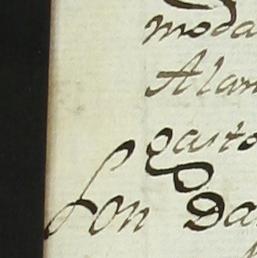 moda
Alar
gasto
Son Da